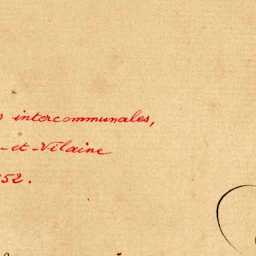 intercommunales,
-et-Vilaine
52.